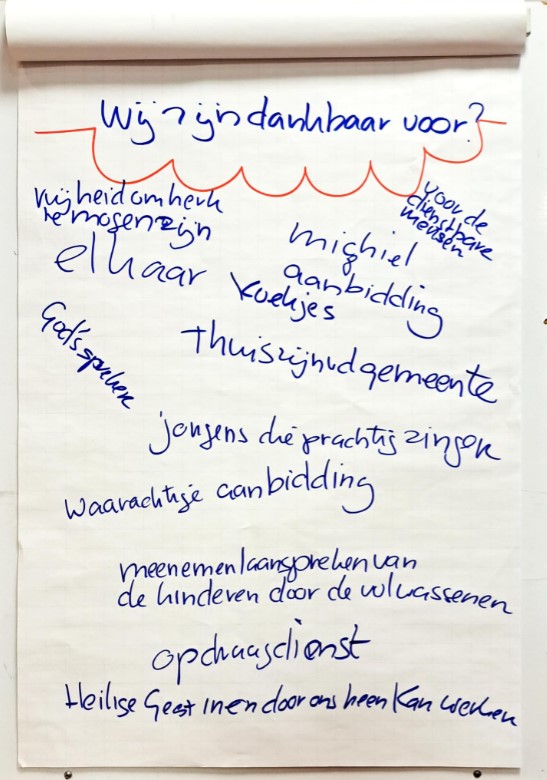 Wij zijn dankbaar voor?
vrijheid om kerk
te mogen zijn
voor de
dienstbare
mensen
elkaar
michiel
aanbidding
koekjes
God's spreken
thuis zijn vd gemeente
jongens die prachtig zingen
waarachtige aanbidding
meenemen/aanspreken van
de kinderen door de volwassenen
opdraagdienst
Heilige Geest in en door ons heen kan werken